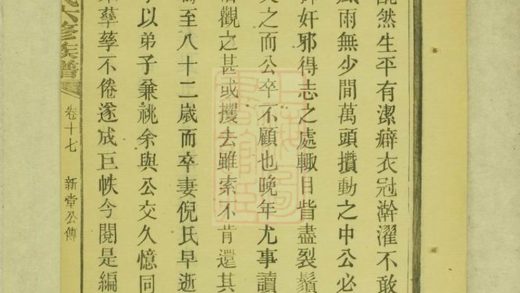 然生平有潔癖衣冠澣濯不敢
風雨無少間萬頭攢動之中公必
奸邪得志之處輒目眥盡裂鬚
之而公卒不顧也晚年尤事讀
觀之甚或攫去雖索不肯還其
至八十二歲而卒妻倪氏早逝
以弟子兼祧余與公交久憶同
孳孳不倦遂成巨帙今閱是編
六修族譜 卷十七 新堂公傳